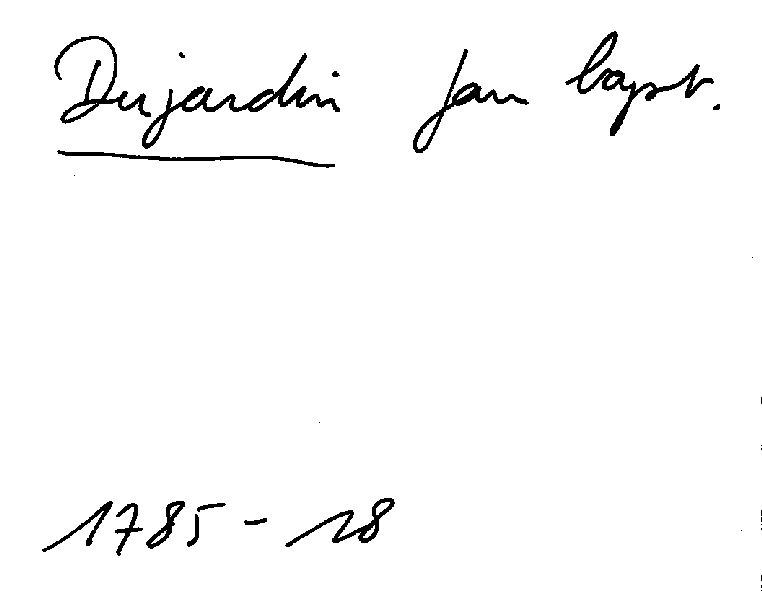 Dujardin Jan bapt.
1785 - 18